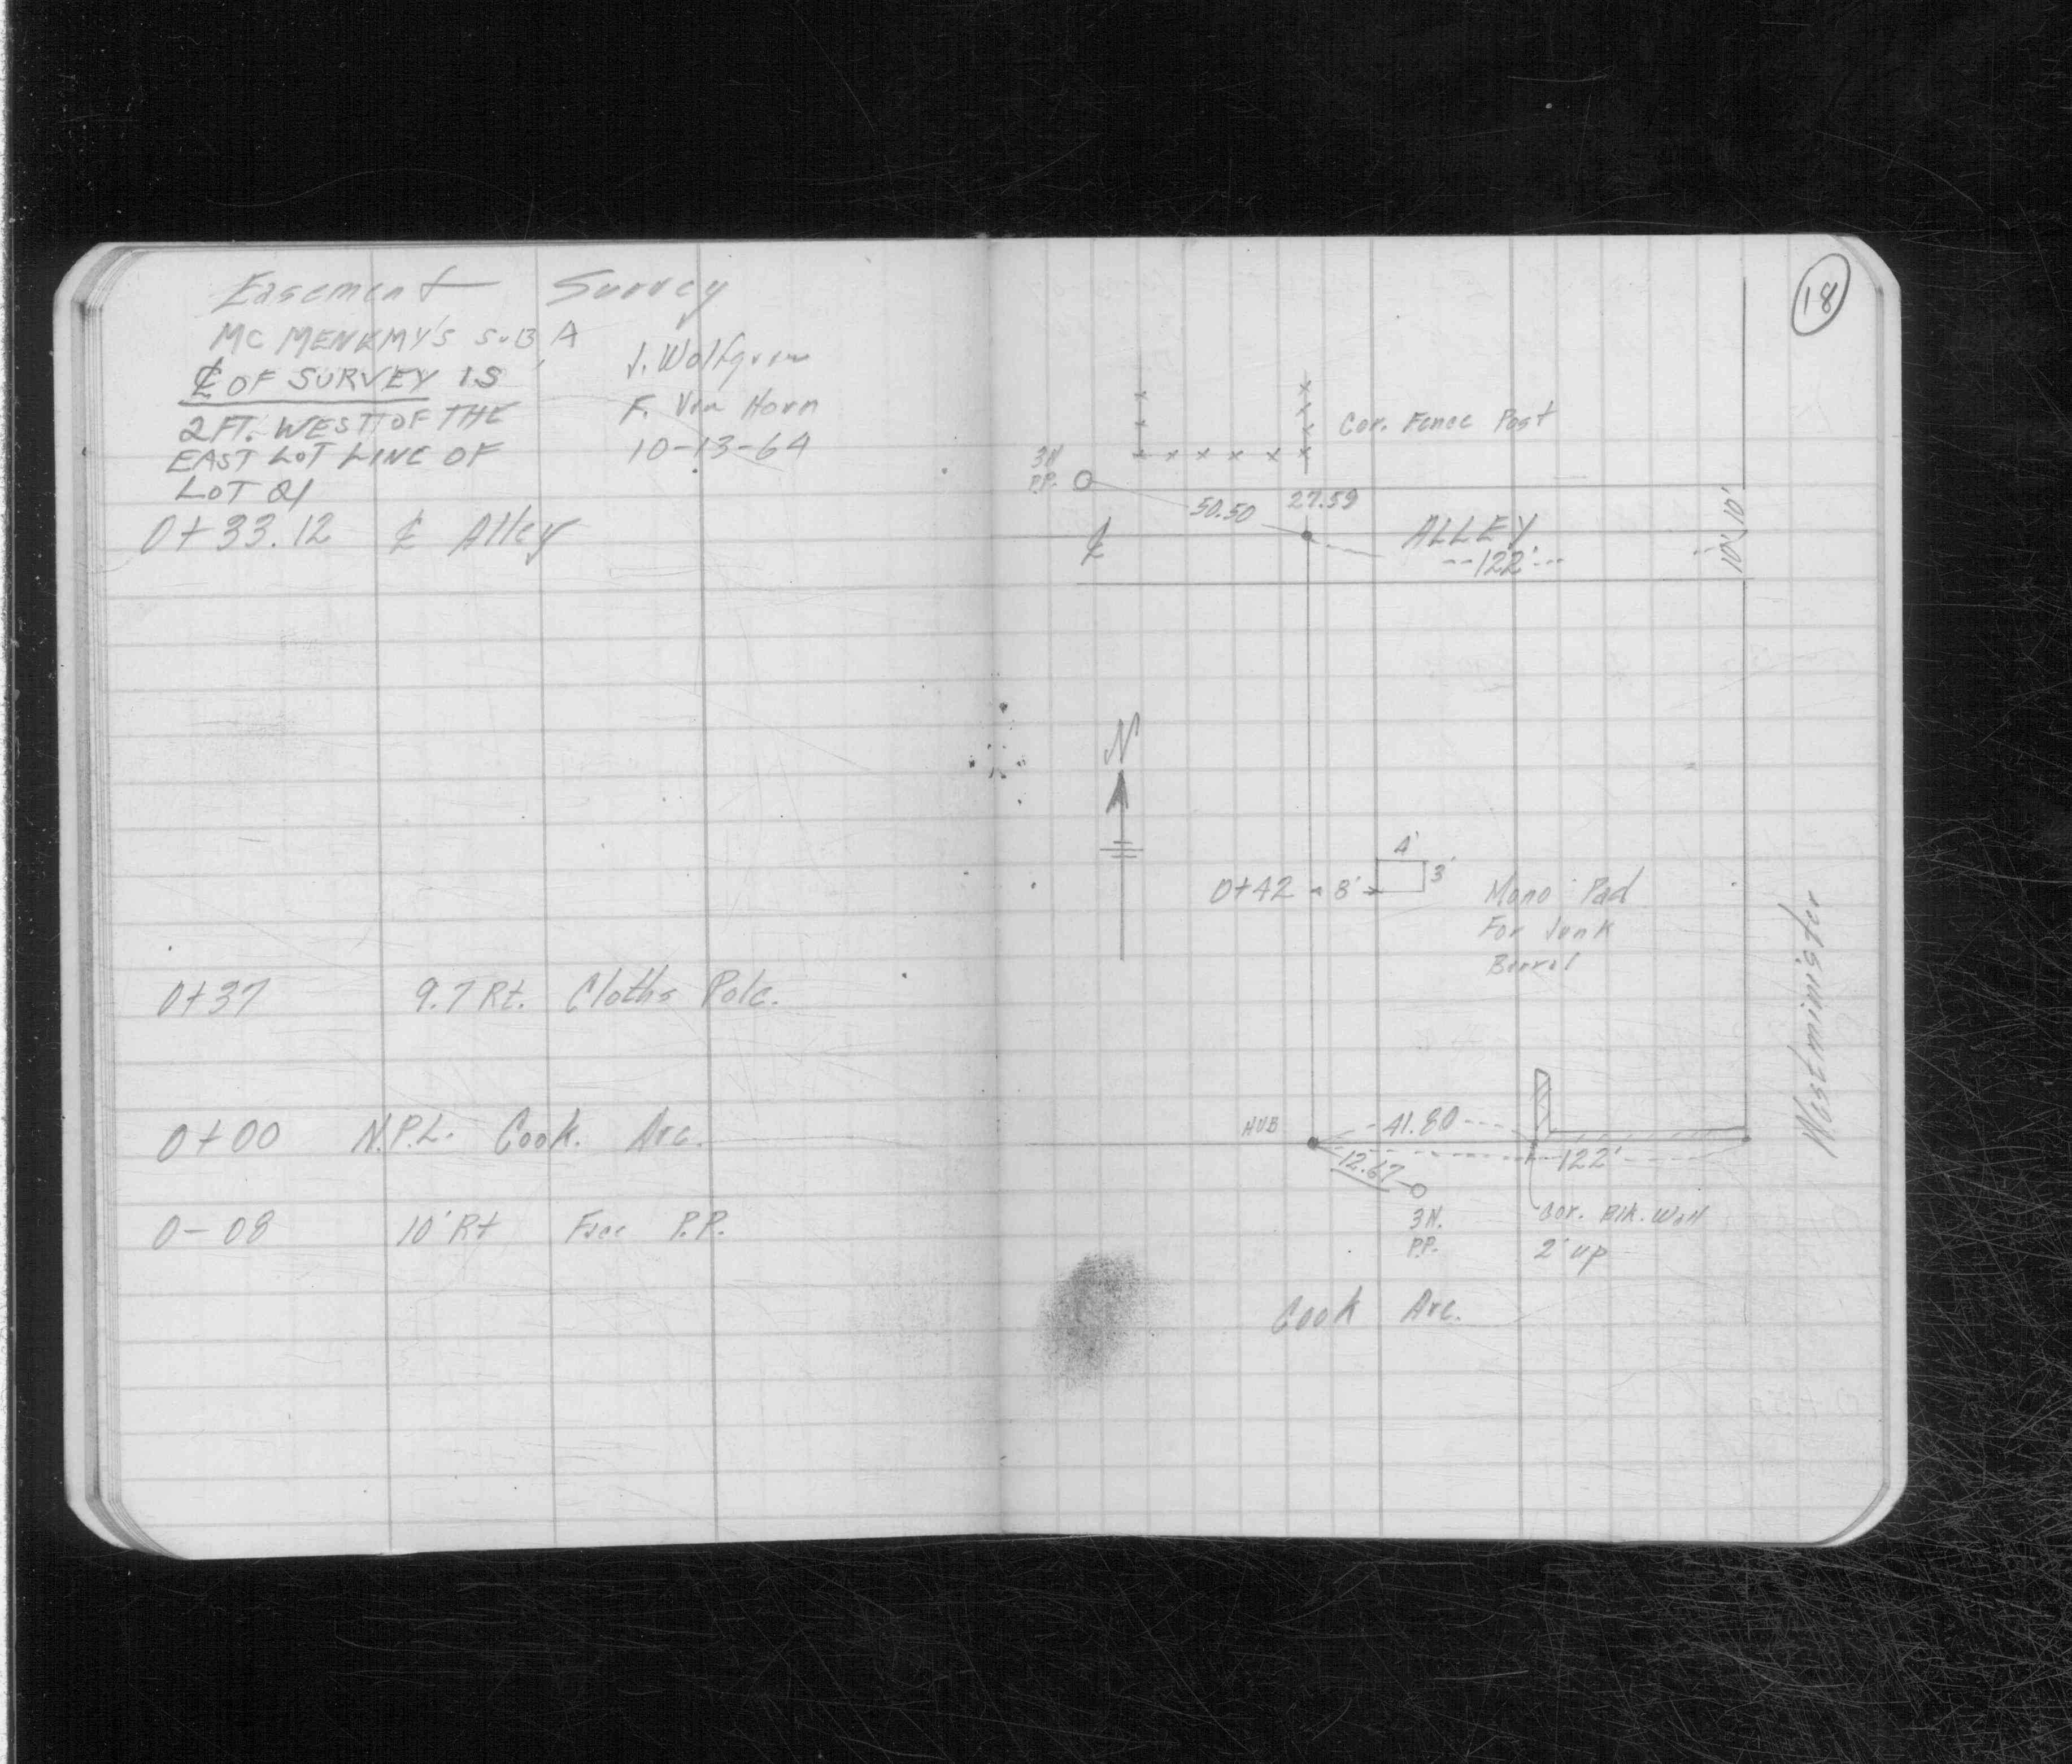 Easement Survey
MC MENKMY'S SUB A
℄ OF SURVEY IS
2 FT. WEST OF THE
EAST LOT LINE OF
LOT 21
J. Wolfgram
F. Van Horn
10-13-64
0+33.12 ℄ Alley
0+37 9.7 Rt. Cloths Pole.
0+00 N.P.L. Cook. Ave.
0-08 10' Rt Face P.P.
18
Cor. Fence Post
3N
P.P.
50.50
27.59
℄
ALLEY
122'
10' 10'
N
4'
3'
0+42 8'
Mono Pad
For Junk
Barrel
Westminister
HUB
41.80
12.67
122'
3N.
P.P.
Cor. Blk. Wall
2' up
Cook Ave.